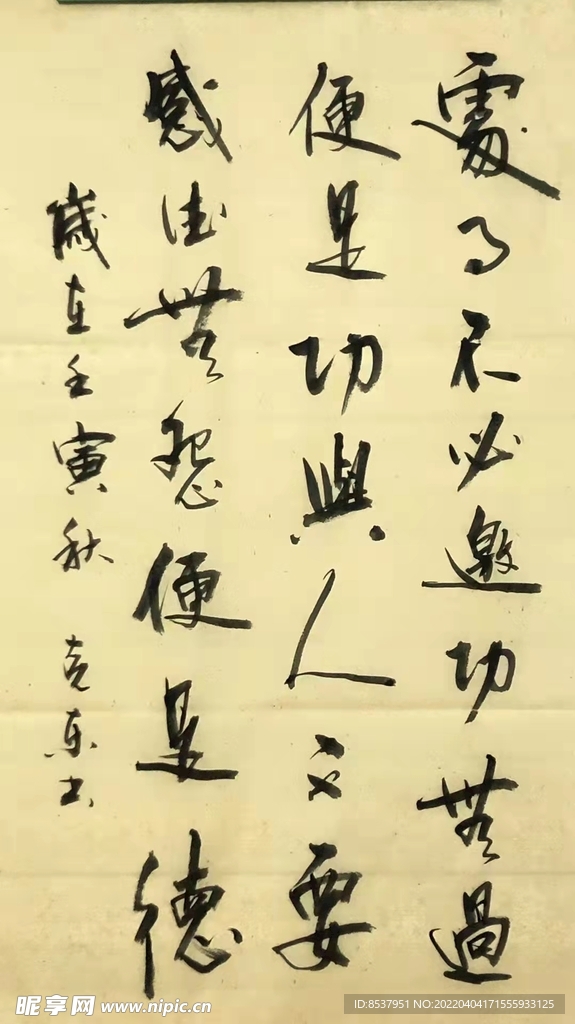 處事不必邀功無過
便是功與人不要
感德無怨便是德
歲在壬寅秋 克东书
昵享网 www.nipic.cn
ID:8537951 NO:20220404171555933125